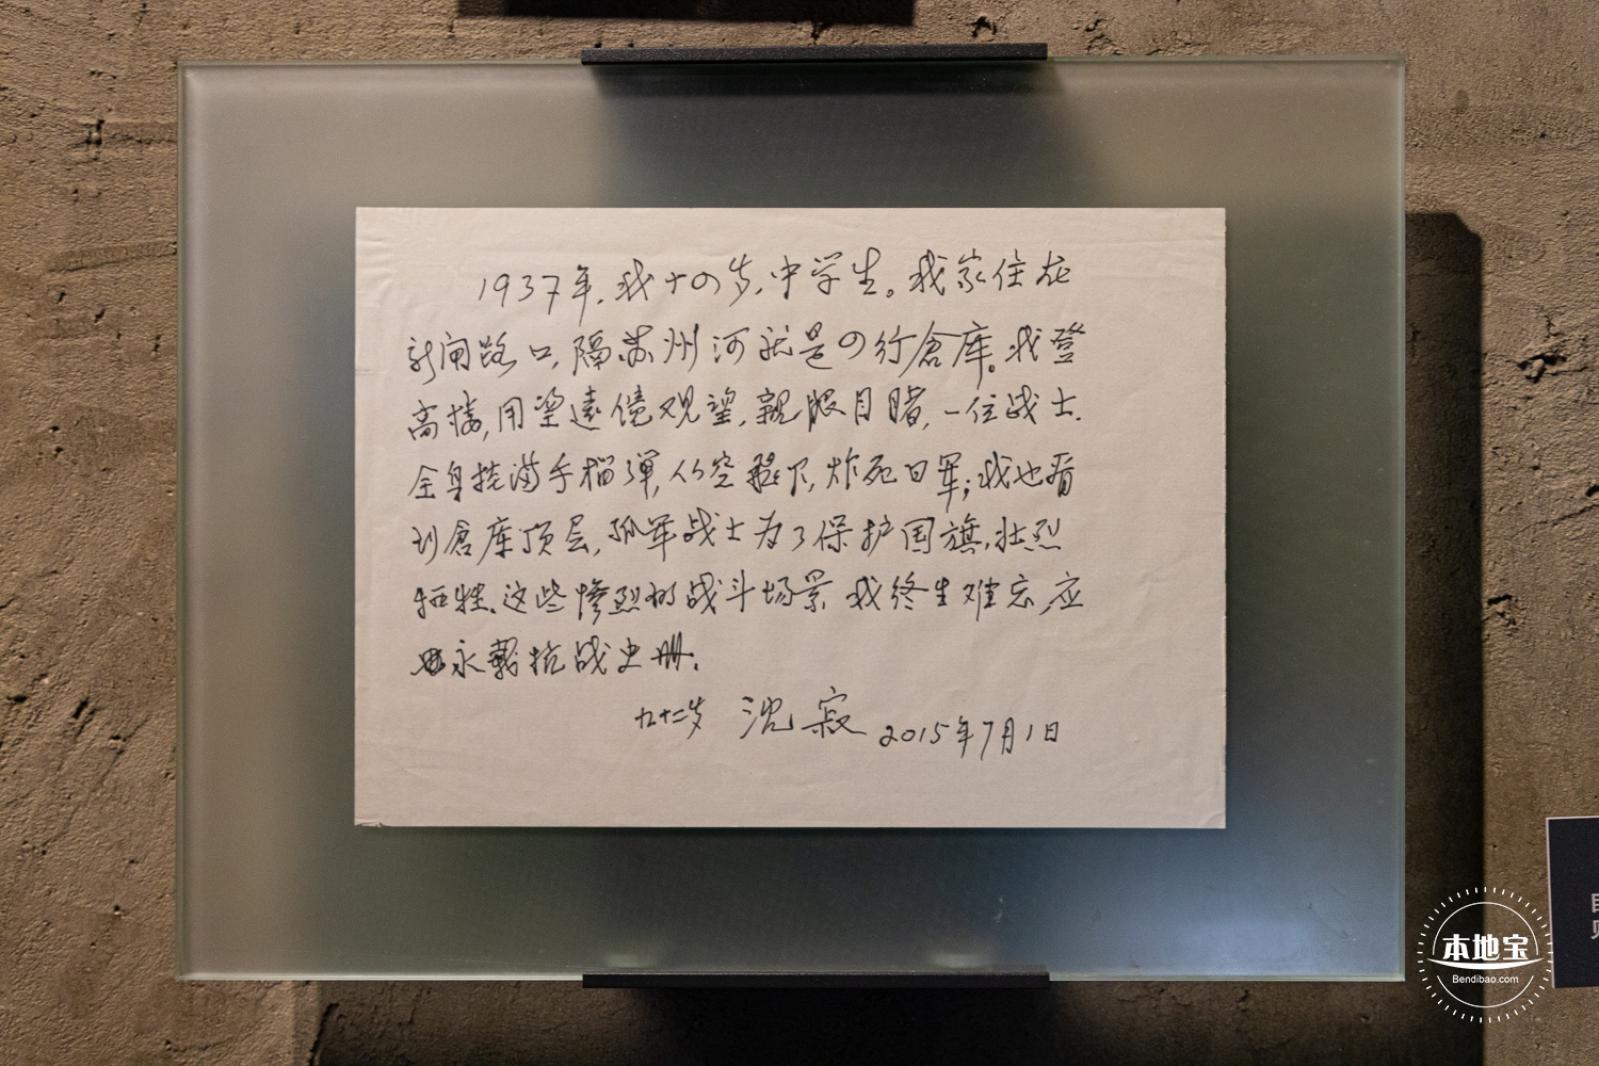 1937年，我十四岁，中学生。我家住在
新闸路口，隔苏州河就是四行仓库。我登
高楼，用望远镜观望，亲眼目睹，一位战士，
全身挂满手榴弹，从空跃下，炸死日军；我也看
到仓库顶层，孤军战士为了保护国旗，壮烈
牺牲。这些惨烈的战斗场景 我终生难忘，应
永载抗战史册。
九十二岁 沈寂 2015年7月1日
本地宝
Bendibao.com